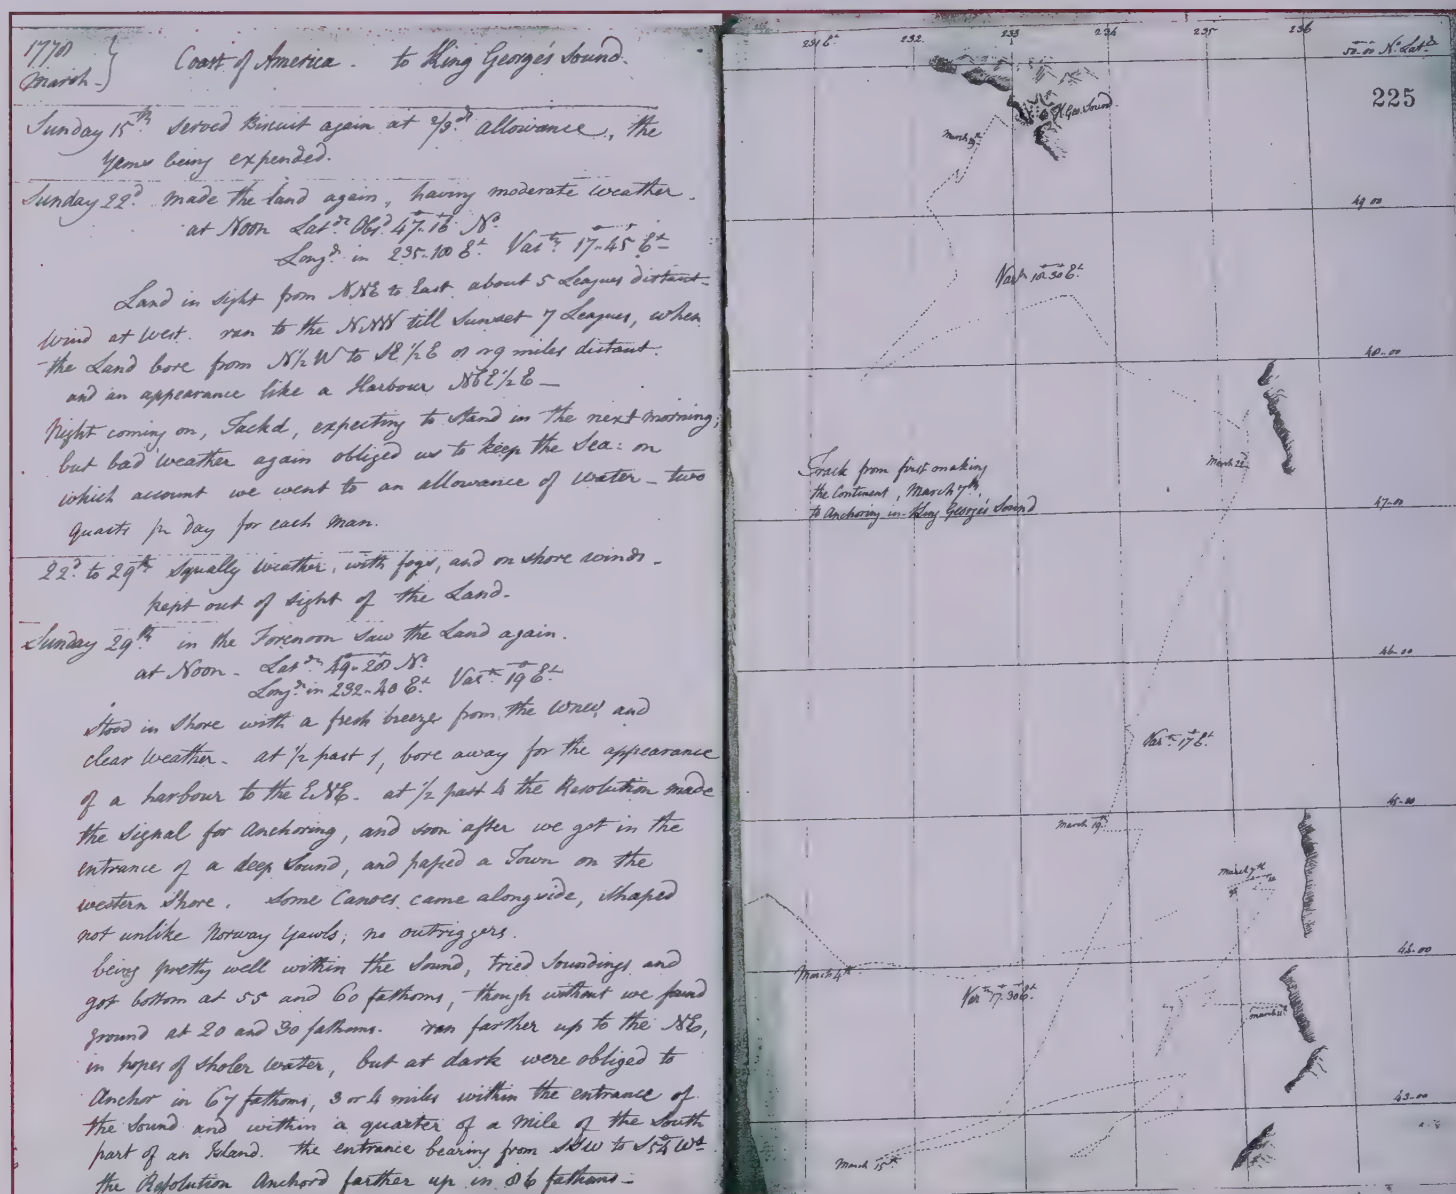 1778
March
Coast of America. to King George's Sound.
Sunday 15th served Biscuit again at 2/3ds allowance, the
Yams being expended.
Sunday 22d made the land again, having moderate weather.
at Noon Latde Obsd 47..16 No
Longde in 235..10 Et Vartn 17..45 Et
Land in sight from NNE to East about 5 Leagues distant
Wind at West. ran to the NNW till Sunset 7 Leagues, when
the Land bore from N½W to SE½E 8 or 9 miles distant.
and an appearance like a Harbour NEE½E —
Night coming on, Tackd, expecting to stand in the next morning;
but bad Weather again obliged us to keep the Sea: on
which account we went to an allowance of Water — two
quarts pr Day for each Man.
22d to 29th Squally Weather, with fogs, and on shore winds.
kept out of sight of the Land.
Sunday 29th in the Forenoon saw the Land again.
at Noon - Latde 49..28 No
Longde in 232..40 Et Vartn 19 Et
Stood in Shore with a fresh breeze from the WNW, and
clear Weather. at ½ past 1, bore away for the appearance
of a harbour to the ENE. at ½ past 4 the Resolution made
the Signal for Anchoring, and soon after we got in the
entrance of a deep Sound, and passed a Town on the
western Shore. Some Canoes came alongside, shaped
not unlike Norway Yawls; no outriggers.
being pretty well within the Sound, tried Soundings and
got bottom at 55 and 60 fathoms, though without we found
ground at 20 and 30 fathoms. ran farther up to the NE,
in hopes of sholer Water, but at dark were obliged to
Anchor in 67 fathoms, 3 or 4 miles within the entrance of
the Sound and within a quarter of a Mile of the South
part of an Island. the entrance bearing from SSW to S54Wt
the Resolution Anchord farther up in 86 fathoms —
231 Et
232
233
234
235
236
50..00 No Latde
225
K Geos Sound
March 29th
49..00
Vartn 18..30 Et
48..00
March 22d
Track from first making
the Continent, March 7th,
to Anchoring in King George's Sound
47..00
46..00
Vartn 17 Et
45..00
March 19th
March 7th
44..00
March 4th
Vartn 17..30 Et
43..00
March 15th